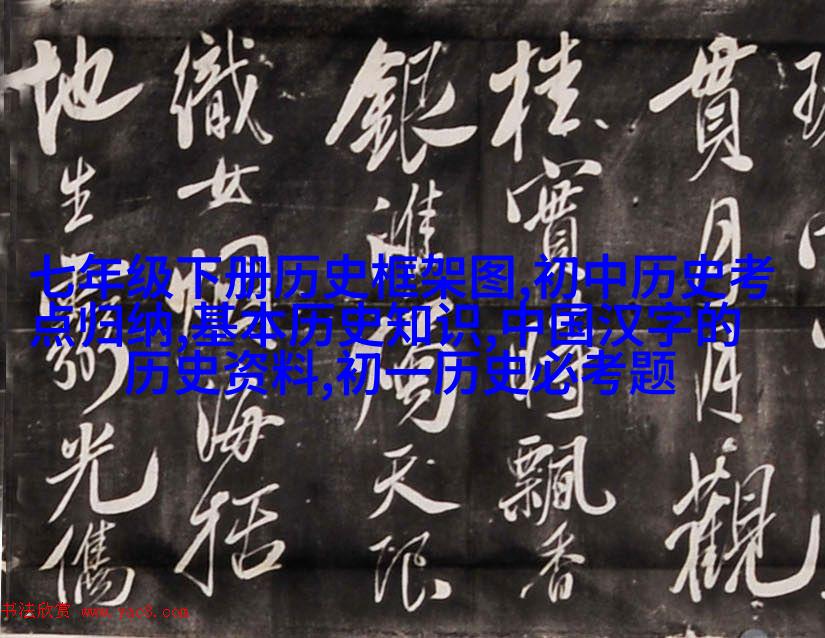 貫月月觀
桂實時飄香
銀淮天限
織女海括
地生光儁
七年级下册历史框架图,初中历史考
点归纳,基本历史知识,中国汉字的
历史资料,初一历史必考题
书法欣赏 www.yac8.com